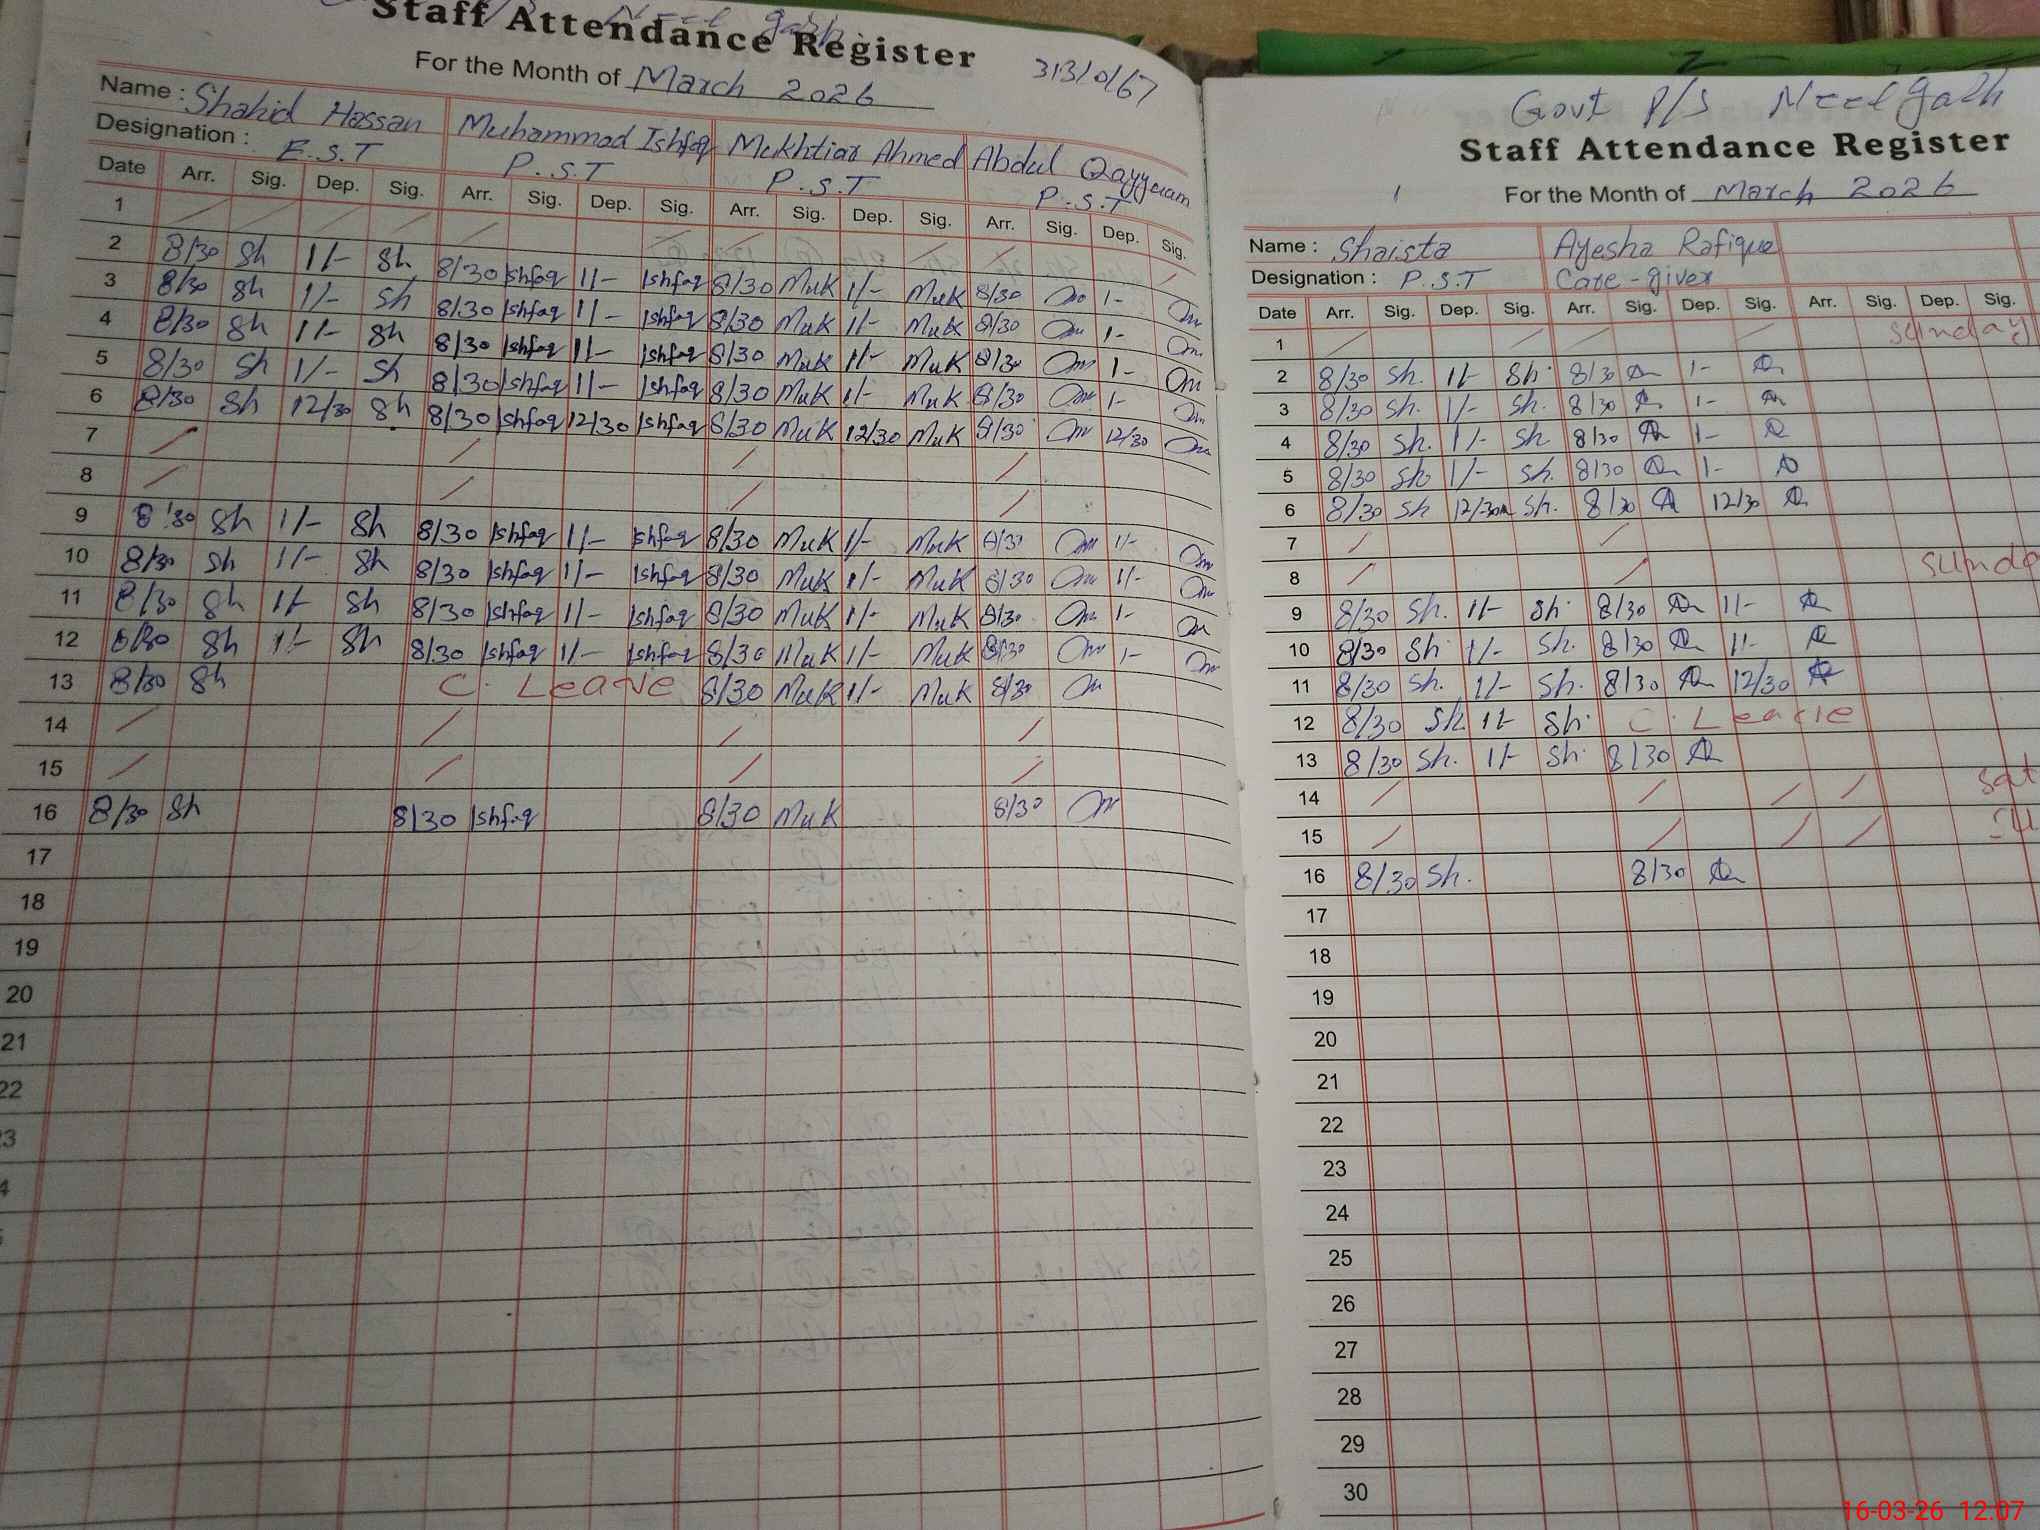 Neel garh
Staff Attendance Register
For the Month of March 2026
Name : Shahid Hassan Muhammad Ishfaq Mukhtiar Ahmed Abdul Qayyuam
Designation : E.S.T P.S.T P.S.T P.S.T
Date Arr. Sig. Dep. Sig. Arr. Sig. Dep. Sig. Arr. Sig. Dep. Sig. Arr. Sig. Dep. Sig.
1
2 8/30 Sh 1/- Sh 8/30 Ishfaq 1/- Ishfaq 8/30 Muk 1/- Muk 8/30 1-
3 8/30 Sh 1/- Sh 8/30 Ishfaq 1/- Ishfaq 8/30 Muk 1/- Muk 8/30 1-
4 8/30 Sh 1/- Sh 8/30 Ishfaq 1/- Ishfaq 8/30 Muk 1/- Muk 8/30 1-
5 8/30 Sh 1/- Sh 8/30 Ishfaq 1/- Ishfaq 8/30 Muk 1/- Muk 8/30 1-
6 8/30 Sh 12/30 Sh 8/30 Ishfaq 12/30 Ishfaq 8/30 Muk 12/30 Muk 8/30 12/30
7
8
9 8/30 Sh 1/- Sh 8/30 Ishfaq 1/- Ishfaq 8/30 Muk 1/- Muk 8/30 1/-
10 8/30 Sh 1/- Sh 8/30 Ishfaq 1/- Ishfaq 8/30 Muk 1/- Muk 8/30 1/-
11 8/30 Sh 1/- Sh 8/30 Ishfaq 1/- Ishfaq 8/30 Muk 1/- Muk 8/30 1-
12 8/30 Sh 1/- Sh 8/30 Ishfaq 1/- Ishfaq 8/30 Muk 1/- Muk 8/30 1-
13 8/30 Sh C. Leave 8/30 Muk 1/- Muk 8/30
14
15
16 8/30 Sh 8/30 Ishfaq 8/30 Muk 8/30
17
18
19
20
21
22
Govt P/S Neel garh
Staff Attendance Register
For the Month of March 2026
Name : Shaista Ayesha Rafique
Designation : P.S.T Care-giver
Date Arr. Sig. Dep. Sig. Arr. Sig. Dep. Sig. Arr. Sig. Dep. Sig.
1 Sunday
2 8/30 Sh. 1/- Sh. 8/30 1-
3 8/30 Sh. 1/- Sh. 8/30 1-
4 8/30 Sh. 1/- Sh 8/30 1-
5 8/30 Sh 1/- Sh. 8/30 1-
6 8/30 Sh 12/30 Sh. 8/30 12/30
7
8
9 8/30 Sh. 1/- Sh. 8/30 1/-
10 8/30 Sh 1/- Sh. 8/30 1/-
11 8/30 Sh. 1/- Sh. 8/30 12/30
12 8/30 Sh 1/- Sh. C. Leave
13 8/30 Sh. 1/- Sh. 8/30
14
15
16 8/30 Sh. 8/30
17
18
19
20
21
22
23
24
25
26
27
28
29
30
16-03-26 12.07